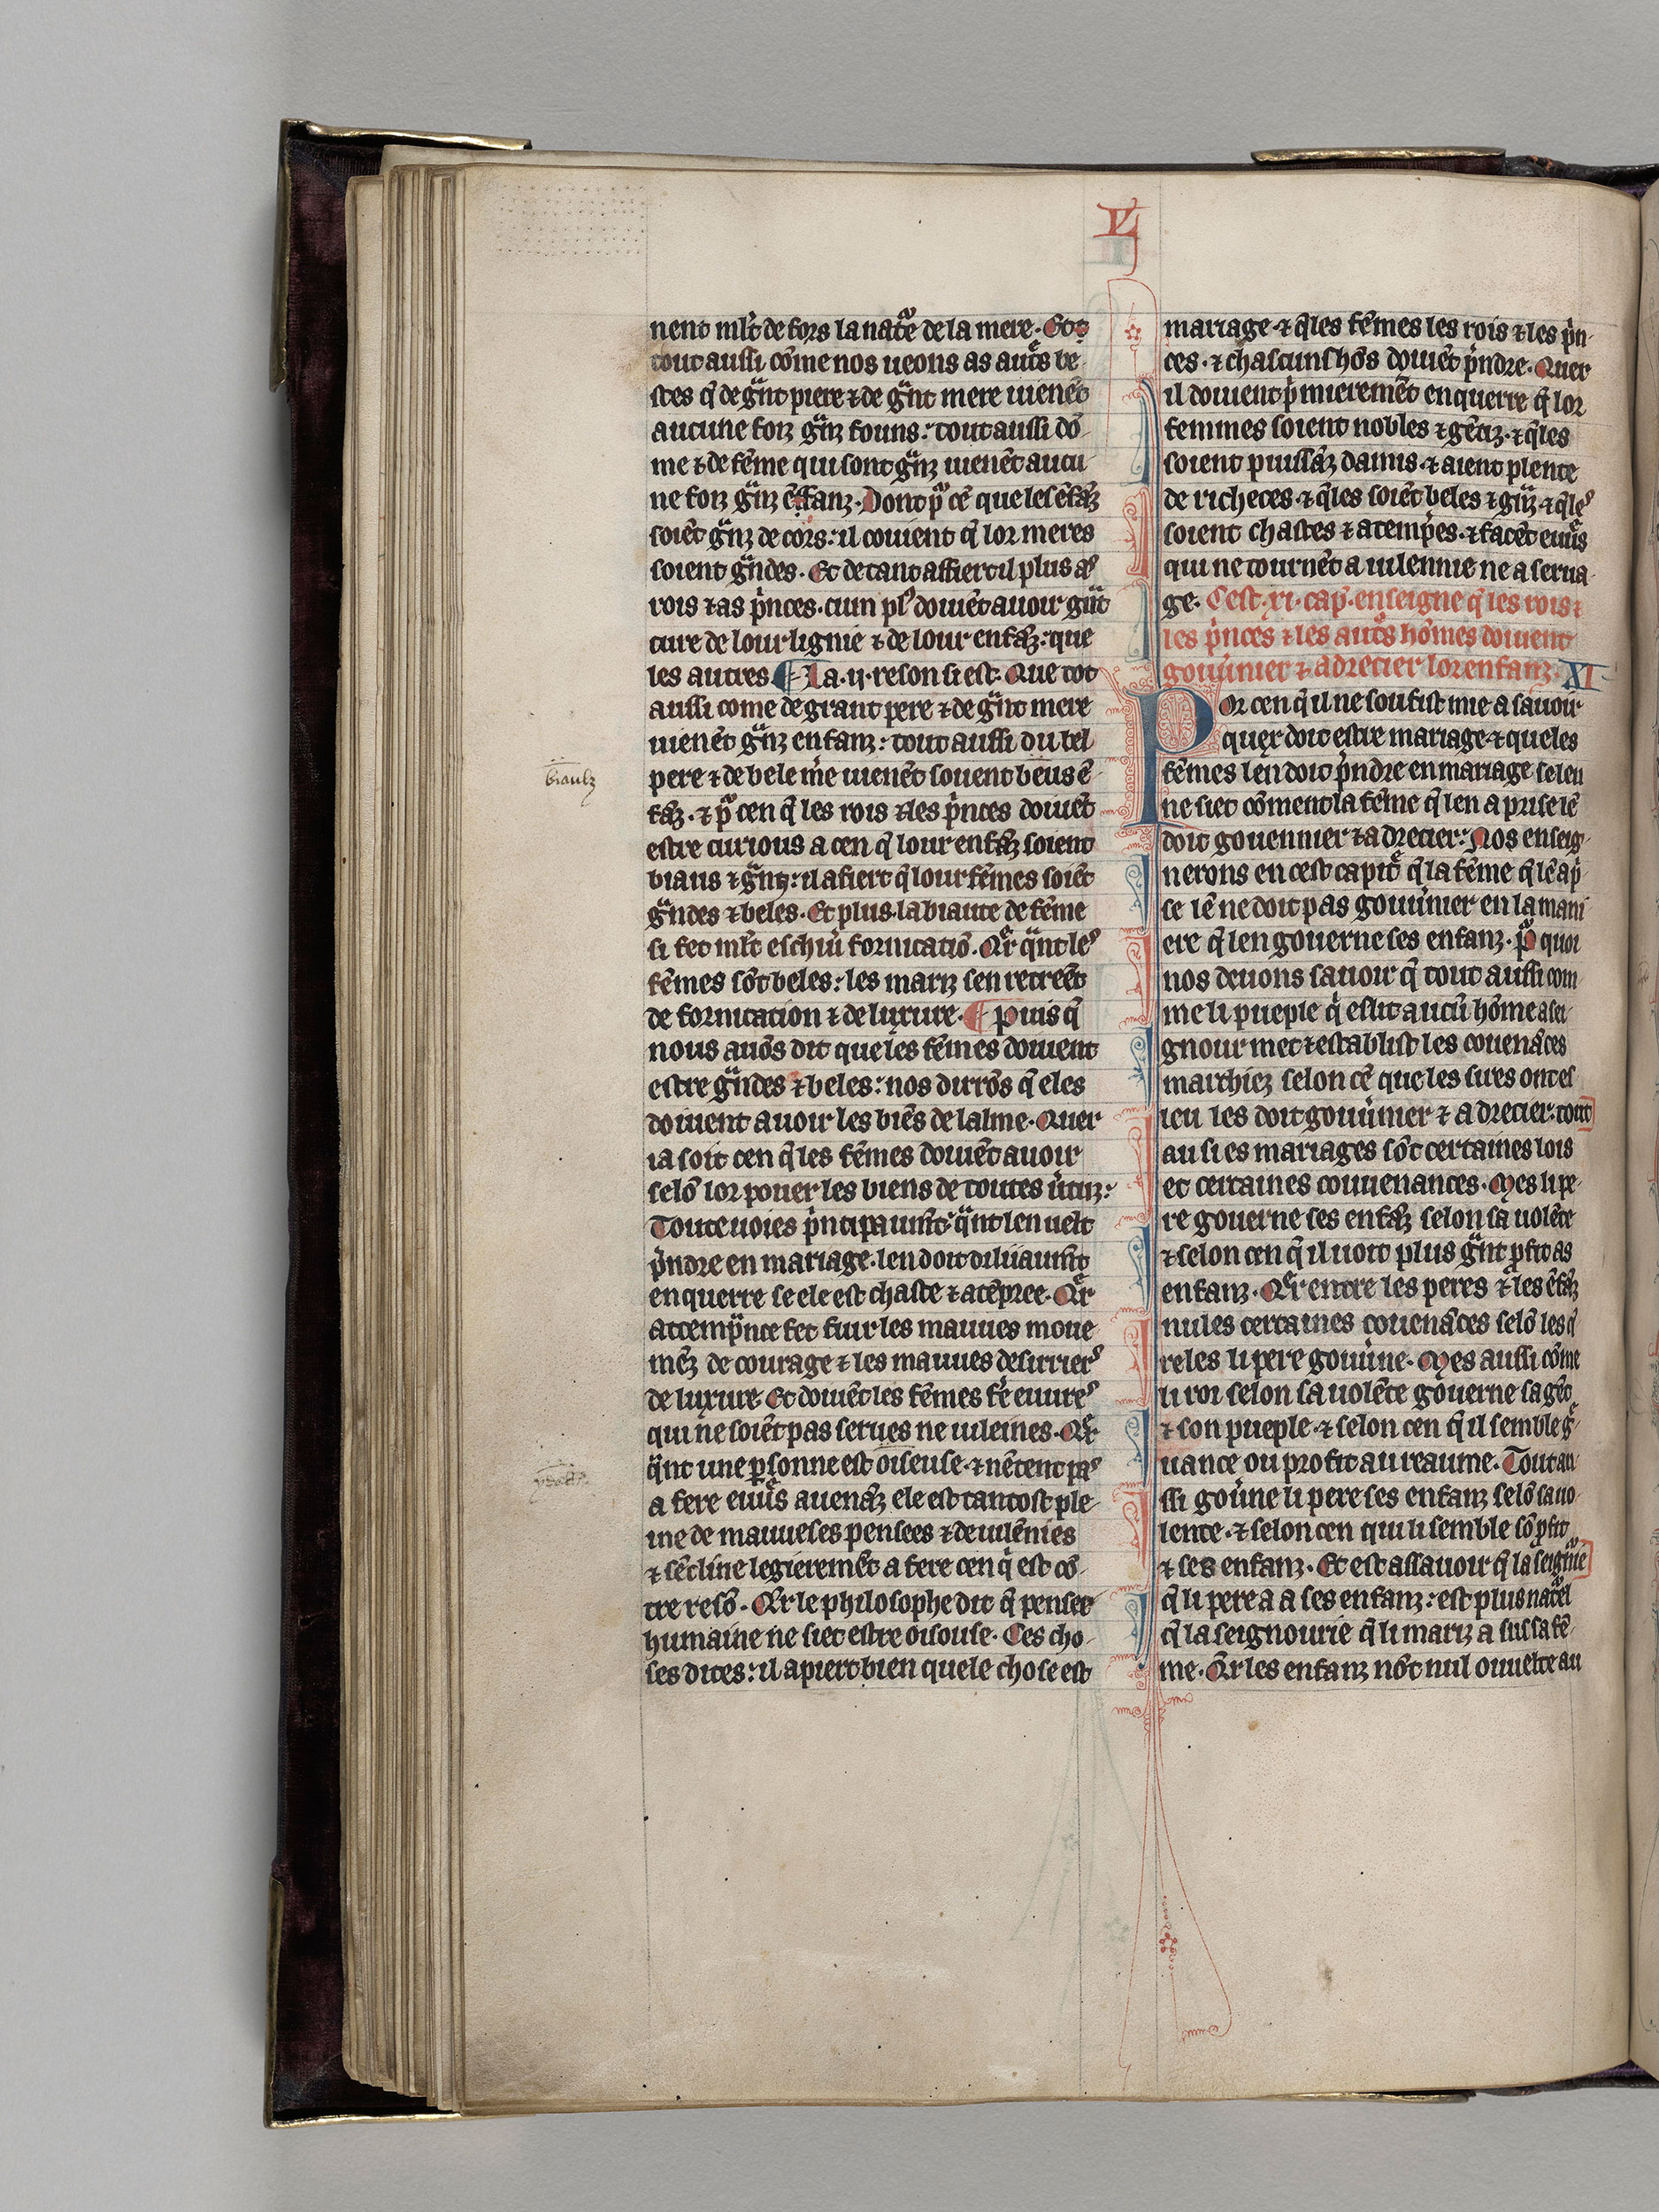 V
nent ml't de fors la nate de la mere. Et
tout aussi cōme nos ueons as autͤs be-
stes q̄ de gᵃnt piere ⁊ de gᵃnt mere uienēt
aucune foiz gᵃnz founs: tout aussi dō-
me ⁊ de fēme qui sont gᵃnz uienēt aucu-
ne foiz gᵃnz ēffanz. Dont pᵒ cē que les ēfāz
soiēt gᵃnz de cors: il couient q̄ lor meres
soient gᵃndes. Et de tant affiert il plus aˢ
rois ⁊ as pⁱnces. cun plꝰ douiēt auoir gᵃnt
cure de lour lignie ⁊ de lour enfāz: que
les autres ¶ La .ii. reson si est. Que tot
aussi come de grant pere ⁊ de gᵃnt mere
uienēt gᵃnz enfanz: tout aussi du bel
pere ⁊ de bele m̄e uienēt souent beus ē-
biaulz
fāz. ⁊ pᵒ cen q̄ les rois ⁊ les pⁱnces doiuēt
estre curious a cen q̄ lour enfāz soient
biaus ⁊ gᵃnz: il afiert q̄ lour fēmes soiēt
gᵃndes ⁊ beles. Et plus. la biaute de fēme
si fet ml't eschiu' fornicatiō. Qͤr qᵃnt leˢ
fēmes sōt beles: les mariz sen retreēt
de fornication ⁊ de luxure. ¶ Puis q̄
nous auōs dit que les fēmes doiuent
estre gᵃndes ⁊ beles: nos dirōs q̄ eles
doiuent auoir les biēs de lalme. Quer
ia soit cen q̄ les fēmes doiuēt auoir
selō lor pouer les biens de toutes u'tuz:
Toute uoies pⁱncipaumt qᵃnt len uelt
pⁱndre en mariage. len doit diliiaumt
enquerre se ele est chaste ⁊ atēpree. Qͤr
attempᵃnce fet fuir les mauues moue
mēz de courage ⁊ les mauues desirrierˢ
de luxure. Et doiuēt les fēmes fe' euureˢ
qui ne soiēt pas serues ne uileines. Qͤr
qᵃnt une p̱sonne est oiseuse. ⁊ nētent paˢ
a fere euuͤs auenāz ele est tantost ple-
ine de mauueses pensees ⁊ de uilēnies
⁊ sēcline legieremēt a fere cen qⁱ est cō-
tre resō. Qͤr le philosophe dit q̄ pensee
humaine ne siet estre oisouse. Ces cho-
ses dites: il apiert bien quele chose est
mariage ⁊ q̄les fēmes les rois ⁊ les pⁱn-
ces. ⁊ chascuns hōs doiuēt pⁱndre. Quer
il doiuent pⁱmieremēt enquerre q̄ lor
femmes soient nobles ⁊ gētiz. ⁊ q̄les
soient puissāz damis. ⁊ aient plente
de richeces. ⁊ q̄les soiēt beles ⁊ gᵃnz. ⁊ q̄leˢ
soient chastes ⁊ atempⁱes. ⁊ facēt euuͤs
qui ne tournēt a uilennie ne a serua-
ge. Cest .xi. cap̄. enseigne q̄ les rois ⁊
les pⁱnces ⁊ les autͤs hōmes doiuent
gouu'nier ⁊ adrecier lor enfanz. XI
Por cen q̄ il ne soufist mie a sauoir
quex doit estre mariage ⁊ queles
fēmes len doit pⁱndre en mariage se len
ne siet cōment la fēme q̄ len a prise lē
doit gouennier ⁊ a drecier: Nos enseig-
nerons en cest capitͤ q̄ la fēme q̄ lē a pⁱ-
se lē ne doit pas gouu'nier en la mani
ere q̄ len gouerne ses enfanz. Pᵒ quoi
nos deuons sauoir q̄ tout aussi com-
me li pueple qⁱ eslit aucū hōme a sei-
gnour met ⁊ establist les couenāces
marchiez selon cē que les sires ont el
leu les doit gouu'nier ⁊ a drecier: tout
ausi es mariages sōt certaines lois
et certaines couuenances. Mes li pe-
re gouerne ses enfāz selon sa uolēte
⁊ selon cen q̄ il uoit plus gᵃnt p̱fit as
enfanz. Qͤr entre les peres ⁊ les ēfāz
nules certaines couenāces selō les q̄
reles li pere gouu'ne. Mes aussi cōme
li roi selon sa uolēte gouerne sa gēt
⁊ son pueple. ⁊ selon cen q̄ il semble gͤ-
uance ou profit au reaume. Tout au
ssi gou'ne li pere ses enfanz selō sa uo-
lente. ⁊ selon cen qui li semble sō p̱fit
⁊ ses enfanz. Et est assauoir q̄ la seign'ie
q̄ li pere a a ses enfanz: est plus natͤel
q̄ la seignourie q̄ li mariz a sus sa fē-
me. Qͤr les enfanz nōt nul ouuelte au